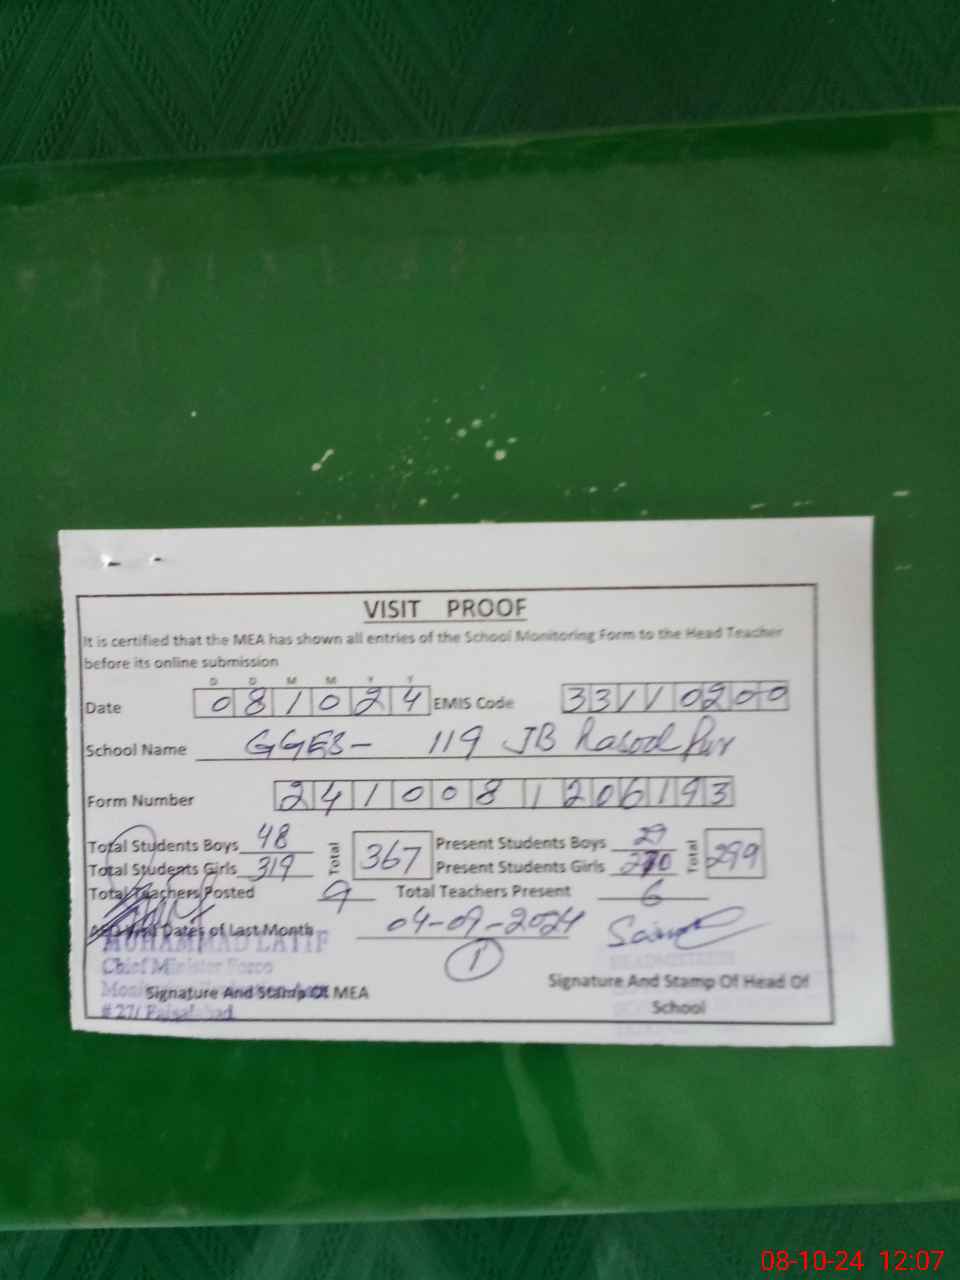 VISIT PROOF
It is certified that the MEA has shown all entries of the School Monitoring Form to the Head Teacher
before its online submission
D D M M Y Y
Date 081024 EMIS Code 33110200
School Name GGES- 119 JB Rasool Pur
Form Number 241008120619 3
Total Students Boys 48 Total 367 Present Students Boys 29 Total 299
Total Students Girls 319 Present Students Girls 270
Total Teachers Posted 9 Total Teachers Present 6
Visit Dates of Last Month 04-09-2024
1
MUHAMMAD LATIF
Chief Minister
Signature And Stamp Of MEA
# 27/ Faisalabad
Signature And Stamp Of Head Of
School
08-10-24 12:07